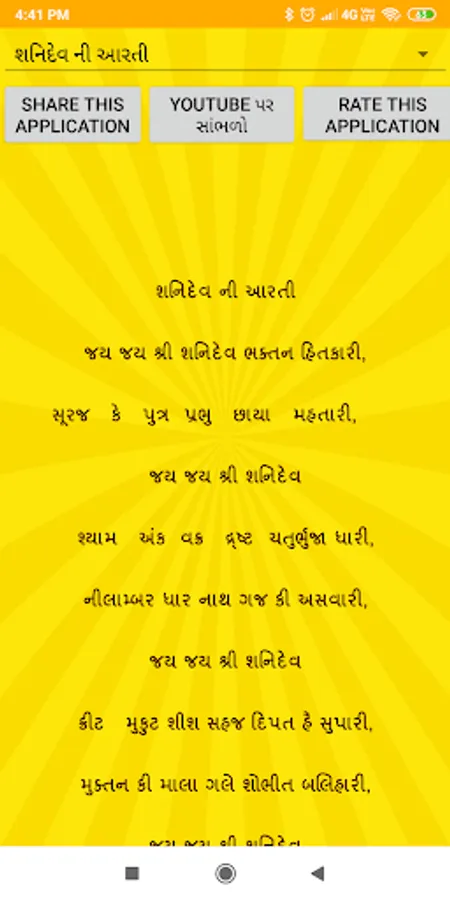 4:41 PM
4G VoLTE 63
શનિદેવ ની આરતી
SHARE THIS
APPLICATION
YOUTUBE પર
સાંભળો
RATE THIS
APPLICATION
શનિદેવ ની આરતી
જય જય શ્રી શનિદેવ ભક્તન હિતકારી,
સૂરજ કે પુત્ર પ્રભુ છાયા મહતારી,
જય જય શ્રી શનિદેવ
શ્યામ અંક વક્ર દ્રષ્ટ ચતુર્ભુજા ધારી,
નીલામ્બર ધાર નાથ ગજ કી અસવારી,
જય જય શ્રી શનિદેવ
ક્રીટ મુકુટ શીશ સહજ દિપત હૈ સુપારી,
મુક્તન કી માલા ગલે શોભીત બલિહારી,
જય જય શ્રી શનિદેવ